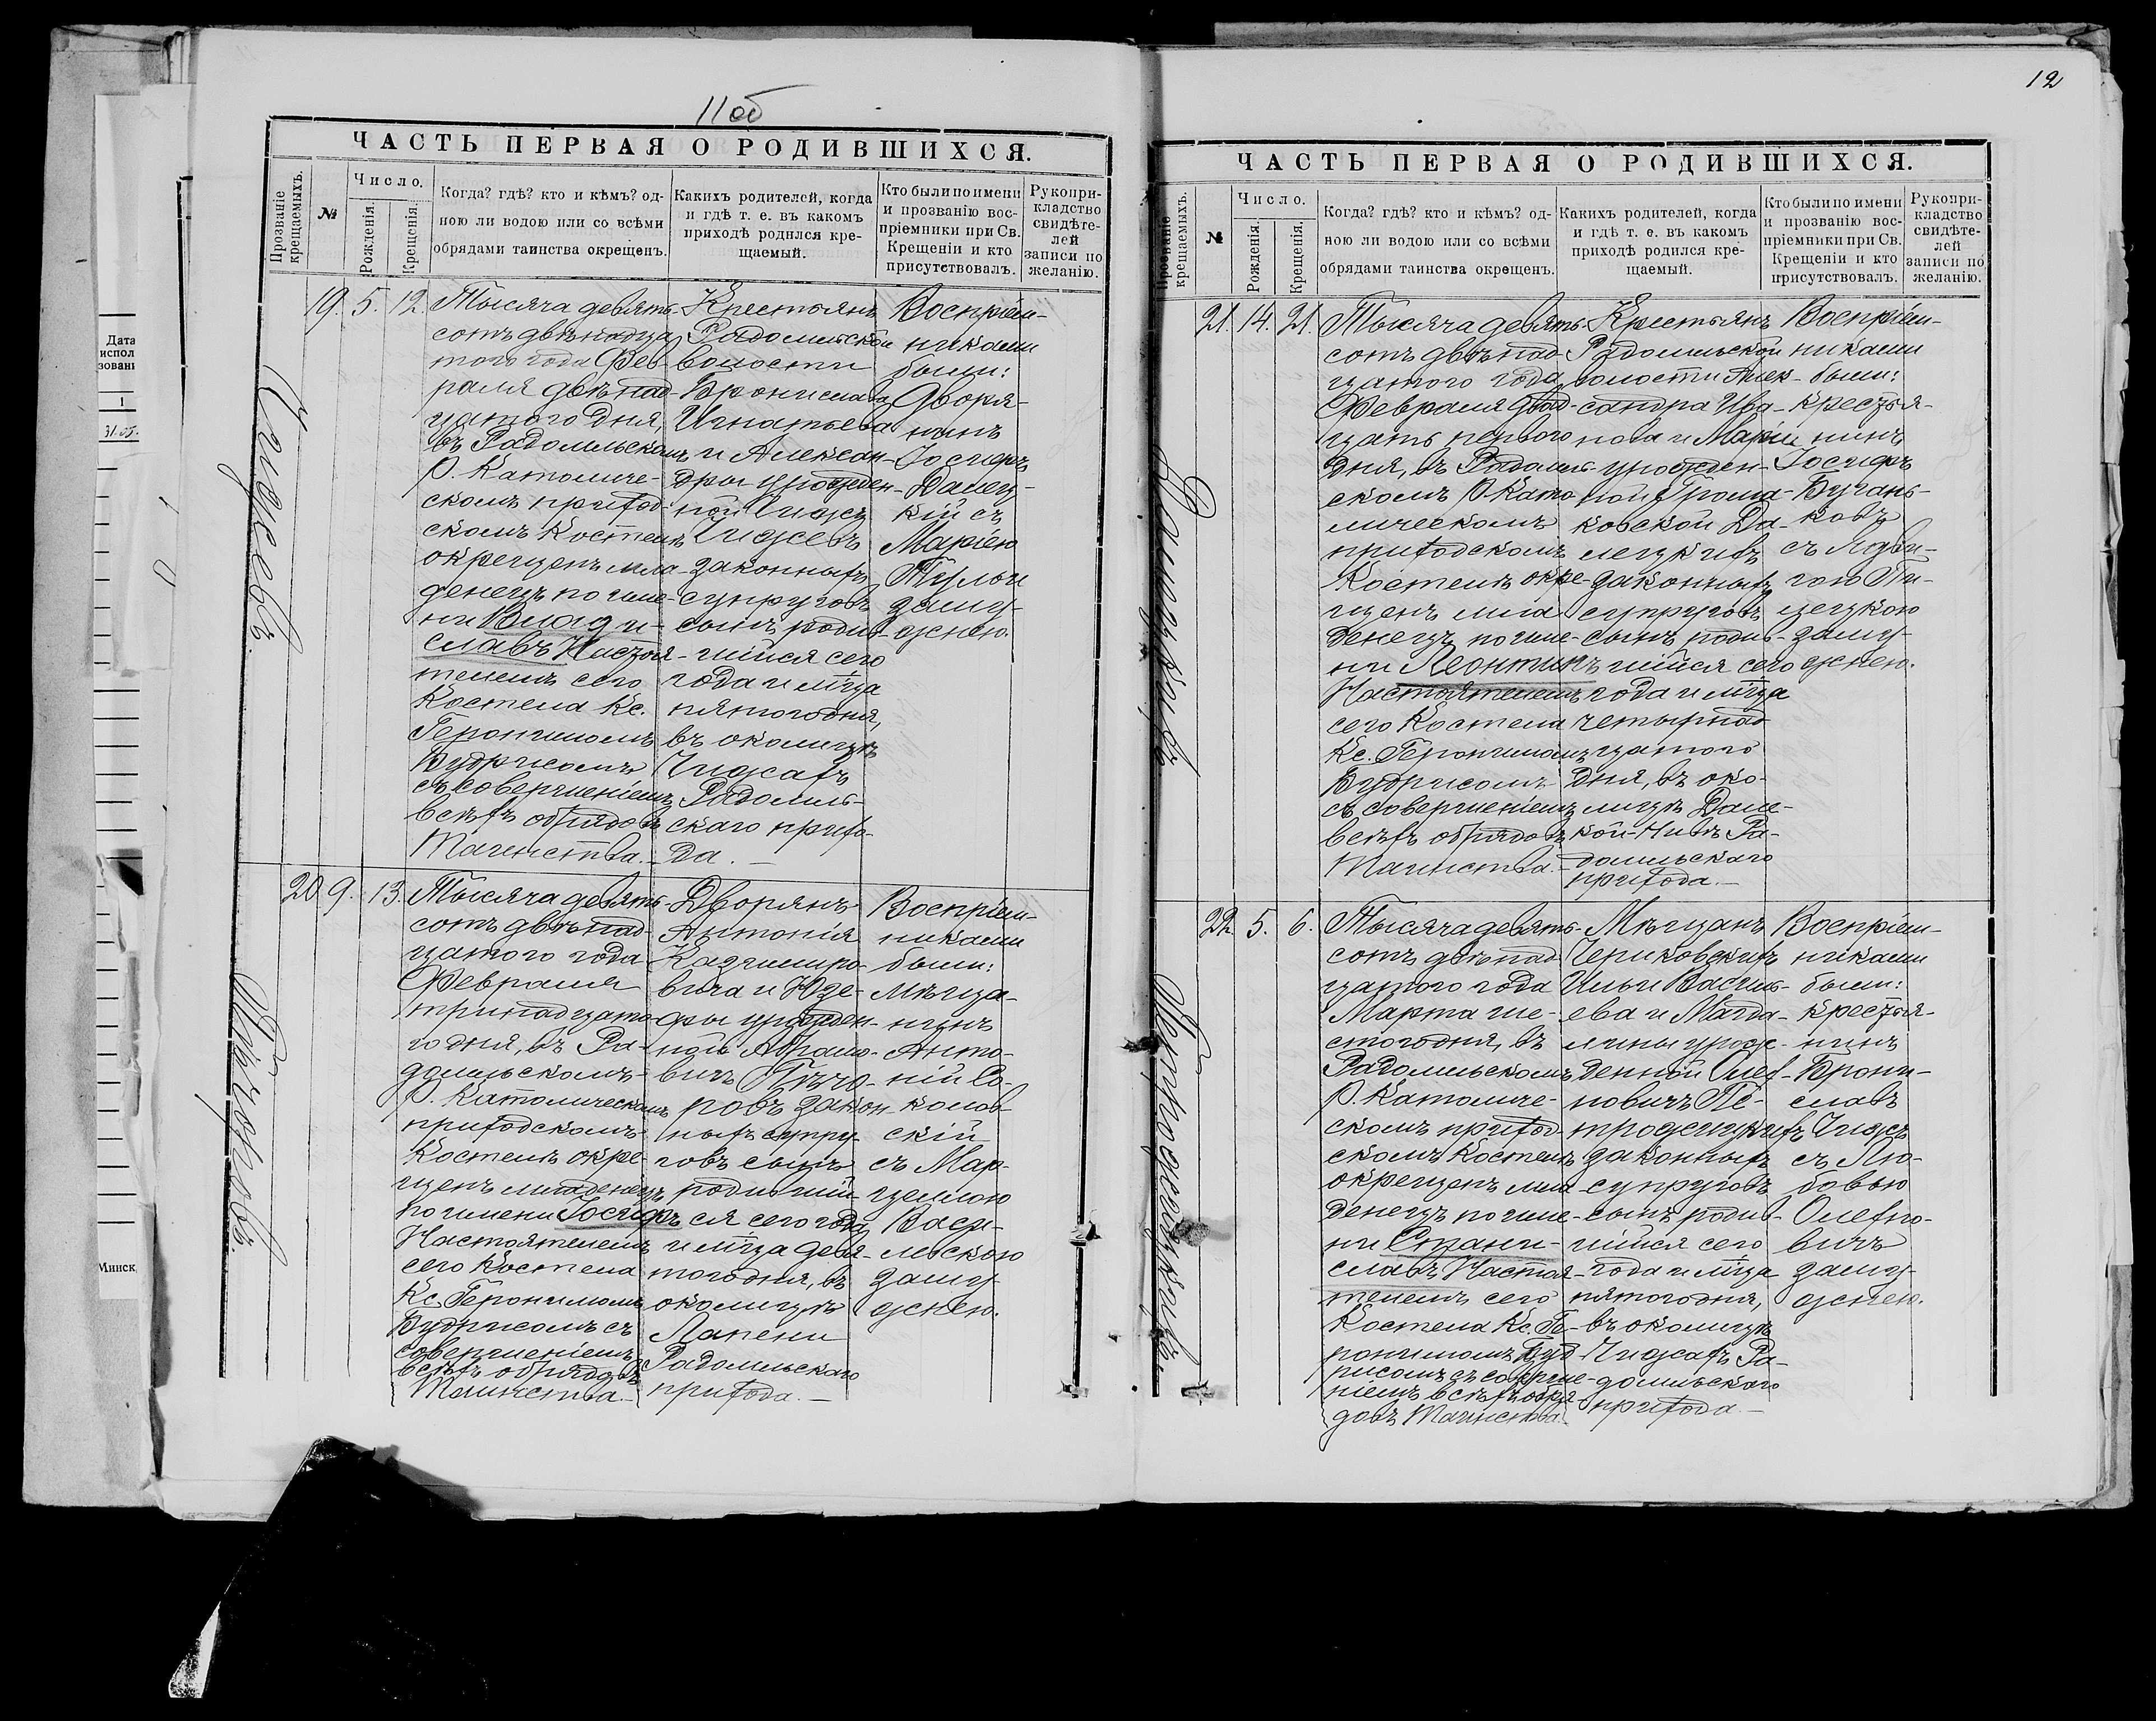 11 об
ЧАСТЬ ПЕРВАЯ О РОДИВШИХСЯ.
Прозваніе крещаемыхъ.
№
Число.
Рожденія.
Крещенія.
Когда? гдѣ? кто и кѣмъ? од-
ною ли водою или со всѣми
обрядами таинства окрещенъ.
Какихъ родителей, когда
и гдѣ т. е. въ какомъ
приходѣ родился кре-
щаемый.
Кто были по имени
и прозванію вос-
пріемники при Св.
Крещеніи и кто
присутствовалъ.
Рукопри-
кладство
свидѣте-
лей
записи по
желанію.
Чижевъ.
19. 5. 12.
Тысяча девять-
сотъ двѣнадца
того года Фев-
раля двѣнад-
цатого дня,
въ Радомльскомъ
Р. Католиче-
скомъ приход-
скомъ Костелѣ
окрещенъ мла-
денецъ по име-
ни Влади-
славъ Настоя-
телемъ сего
Костела Кс.
Геронимомъ
Будрисомъ
съ совершеніемъ
всѣхъ обрядовъ
Таинства.
Крестьянъ
Радомльской
волости
Бронислава
Игнатьева
и Алексан-
дры урожден-
ной Чижъ
Чижевъ
законныхъ
супруговъ
сынъ родив-
шійся сего
года и мѣсяца
пятого дня,
въ околицѣ
Чижахъ
Радомль-
скаго прихо-
да.
Воспріем-
никами
были:
Дворя-
нинъ
Іосифъ
Далец-
кій съ
Маріею
заму-
жнею.
20. 9. 13.
Тысяча девять-
сотъ двѣнад-
цатого года
Февраля
тринадцато-
го дня, въ Ра-
домльскомъ
Р. Католическомъ
приходскомъ
Костелѣ окре-
щенъ младенецъ
по имени Іосифъ
Настоятелемъ
сего Костела
Кс. Геронимомъ
Будрисомъ съ
совершеніемъ
всѣхъ обрядовъ
Таинства.
Дворянъ
Антонія
Казимиро-
вича и Юзе-
фы урожден-
ной Абрамо-
вичъ
законныхъ супру-
говъ сынъ
родившій-
ся сего года
и мѣсяца девя-
того дня, въ
околицѣ
Лапени
Радомльскаго
прихода.
Воспріем-
никами
были:
Мѣща-
нинъ
Анто-
ній Со-
колов-
скій
съ Мар-
целлою
Васи-
левскою
заму-
жнею.
12
ЧАСТЬ ПЕРВАЯ О РОДИВШИХСЯ.
Прозваніе крещаемыхъ.
№
Число.
Рожденія.
Крещенія.
Когда? гдѣ? кто и кѣмъ? од-
ною ли водою или со всѣми
обрядами таинства окрещенъ.
Какихъ родителей, когда
и гдѣ т. е. въ какомъ
приходѣ родился кре-
щаемый.
Кто были по имени
и прозванію вос-
пріемники при Св.
Крещеніи и кто
присутствовалъ.
Рукопри-
кладство
свидѣте-
лей
записи по
желанію.
21. 14. 21.
Тысяча девять-
сотъ двѣнад-
цатого года
Февраля двад-
цать перваго
дня, въ Радомль-
скомъ Р. Като-
лическомъ
приходскомъ
Костелѣ окре-
щенъ мла-
денецъ по име-
ни Леонтинъ
Настоятелемъ
сего Костела
Кс. Геронимомъ
Будрисомъ
съ совершеніемъ
всѣхъ обрядовъ
Таинства.
Крестьянъ
Радомльской
волости Алек-
сандра Ива-
нова и Маріи
урожден-
ной Грома-
ковской Да-
лецкихъ
законныхъ
супруговъ
сынъ родив-
шійся сего
года и мѣсяца
четырнад-
цатого
дня, въ око-
лицѣ Далец-
кой-Нивѣ Ра-
домльскаго
прихода.
Воспріем-
никами
были:
крестья-
нинъ
Іосифъ
съ Ядви-
гою
заму-
жнею.
22. 5. 6.
Тысяча девять-
сотъ двѣнад-
цатого года
Марта ше-
стого дня, въ
Радомльскомъ
Р. Католиче-
скомъ приход-
скомъ Костелѣ
окрещенъ мла-
денецъ по име-
ни Стани-
славъ Настоя-
телемъ сего
Костела Кс. Ге-
ронимомъ Буд-
рисомъ съ соверше-
ніемъ всѣхъ обря-
довъ Таинства.
Мѣщанъ
Чериковскихъ
Ильи Василь-
ева и Магда-
лины урож-
денной Олех-
новичъ Пе-
тродецкихъ
законныхъ
супруговъ
сынъ родив-
шійся сего
года и мѣсяца
пятого дня,
въ околицѣ
Чижахъ Ра-
домльскаго
прихода.
Воспріем-
никами
были:
крестья-
нинъ
Брони-
славъ
Чижъ
съ Лю-
бовью
Олехно-
вичъ
заму-
жнею.
Дата
испол
зовані
1
Минск,